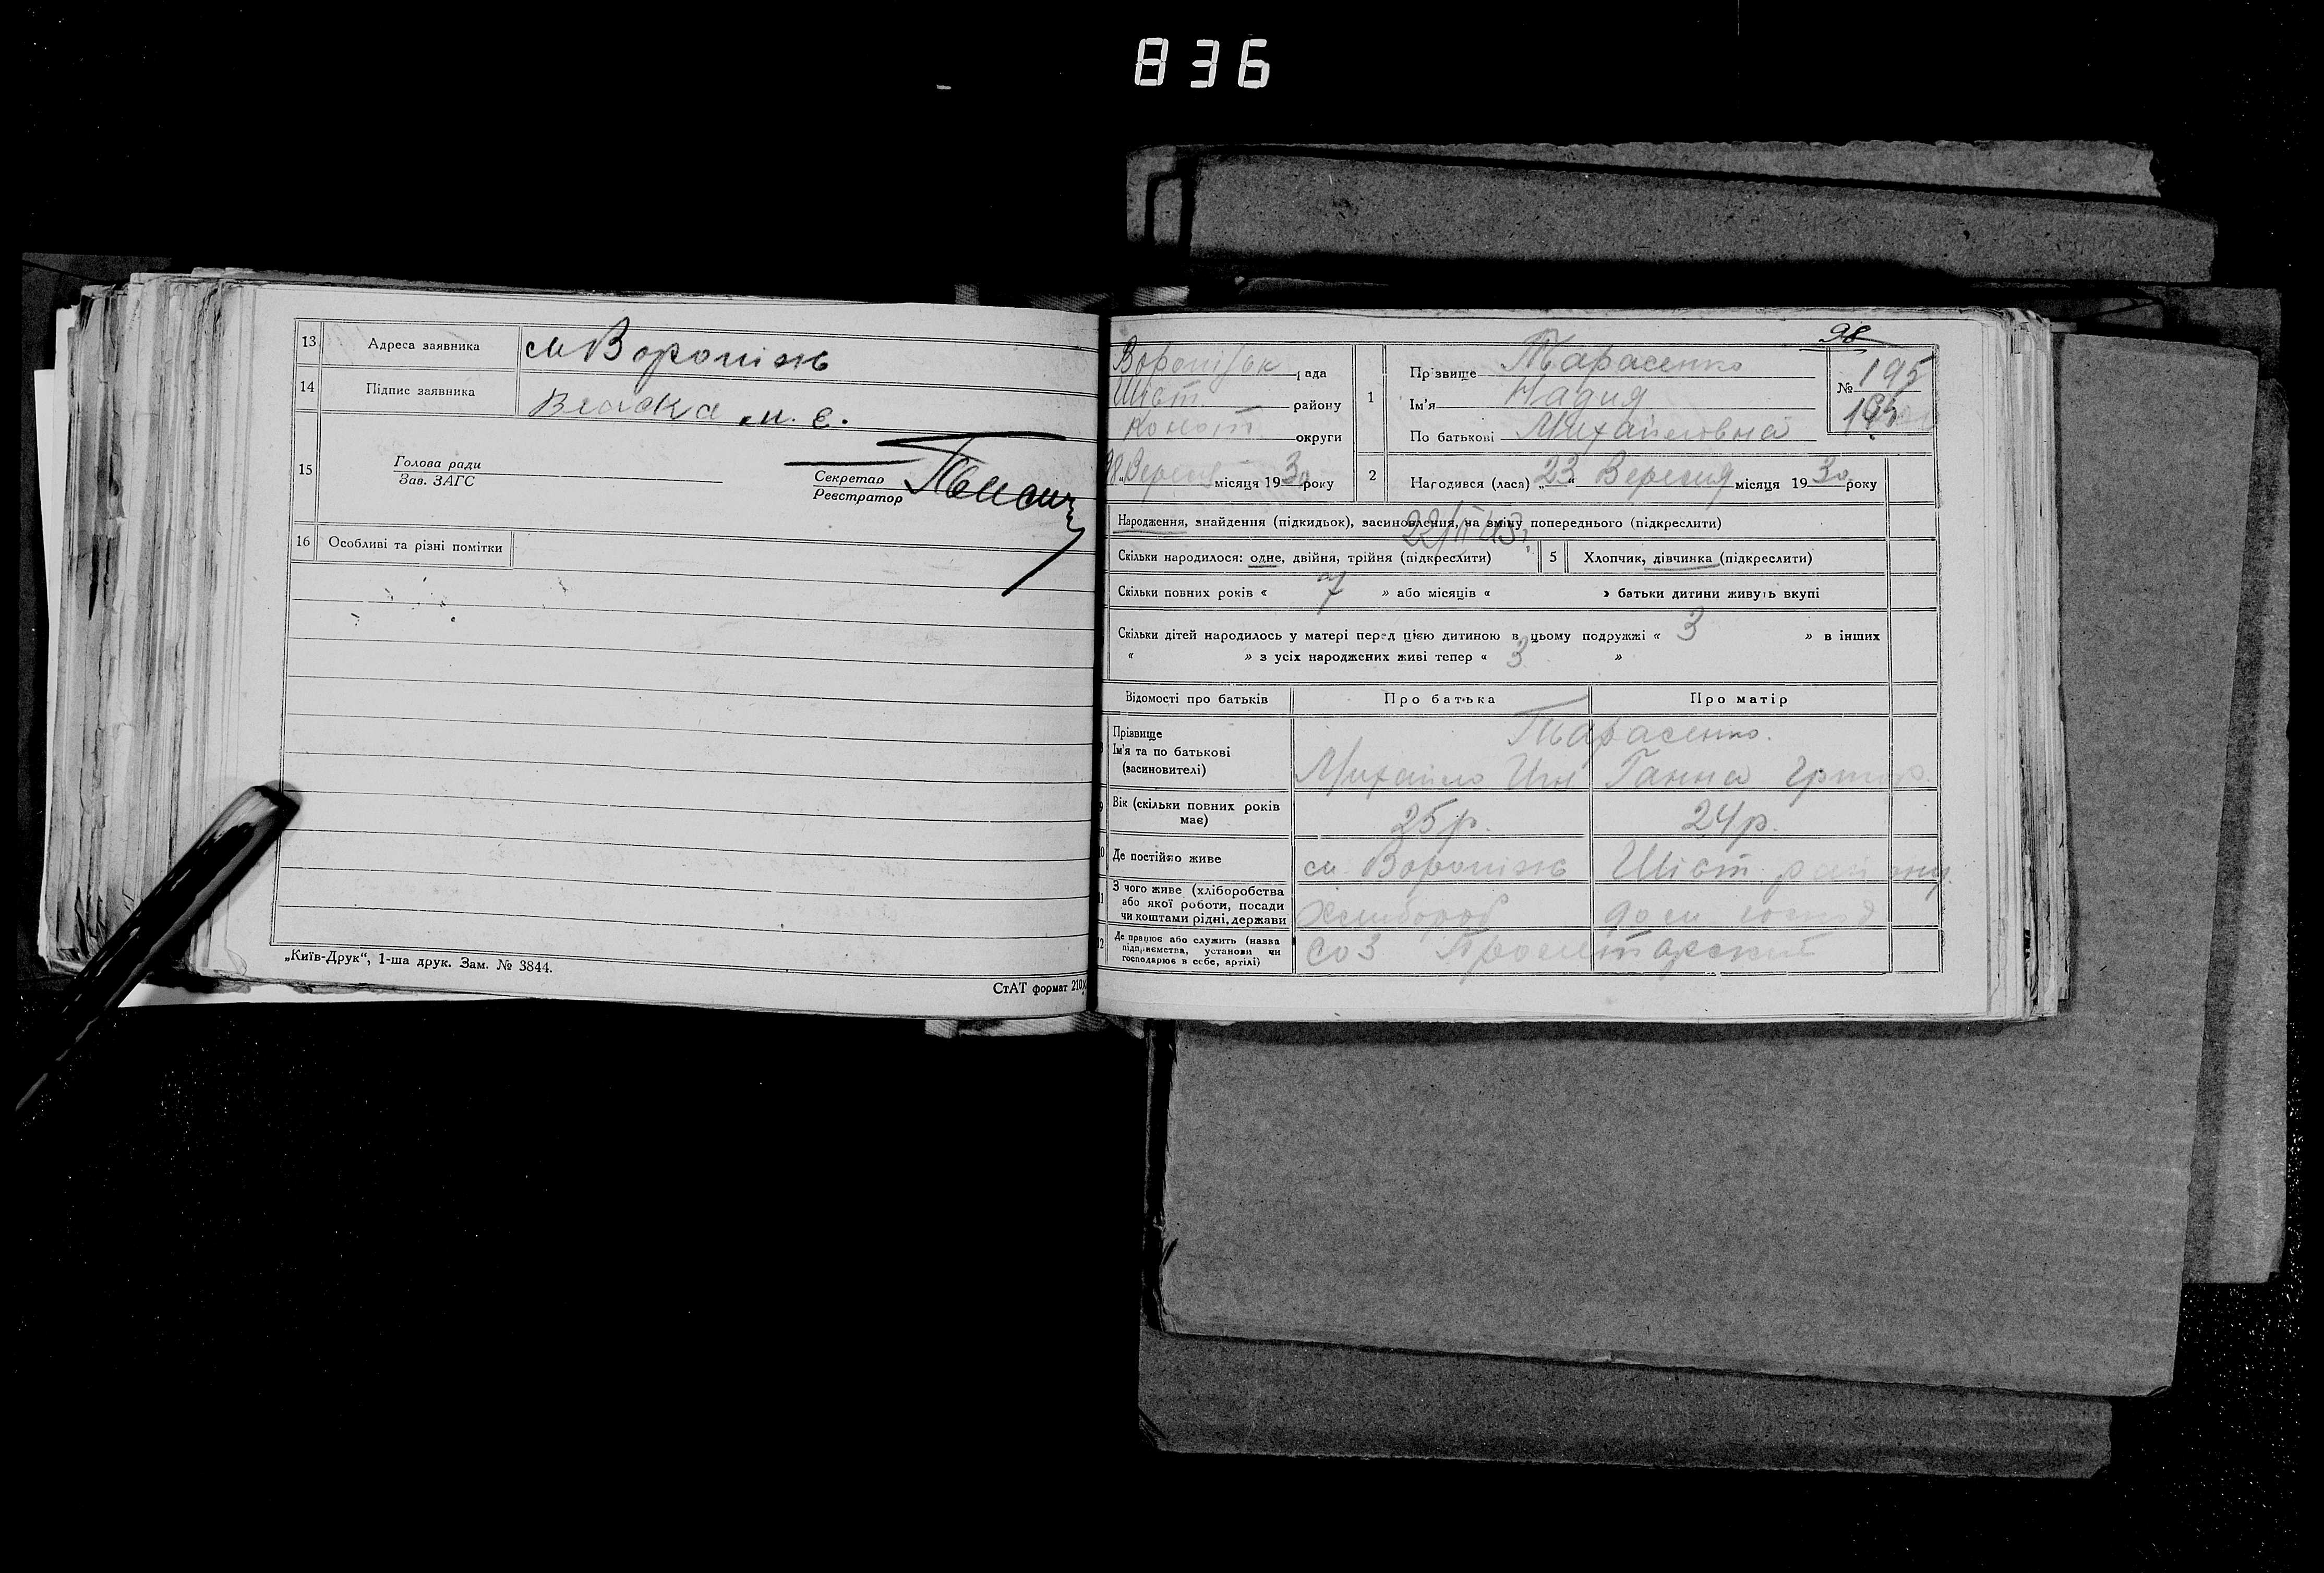 836
13 Адреса заявника см Вороніж
14 Підпис заявника
15 Голова ради
Зав. ЗАГС
Секретар
Реєстратор
16 Особливі та різні помітки
„Київ-Друк“, 1-ша друк. Зам. № 3844.
СтАТ формат 210х
98
Вороніжськ рада
Шост. району
Конот округи
28 Вересня місяця 1930 року
1 Прізвище Тарасенко
Ім'я Надия
По батькові Михайловна
№ 195
195
2 Народився (лася) „23“ Вересня місяця 1930 року
Народження, знайдення (підкидьок), засиновлення, на зміну попереднього (підкреслити)
Скільки народилося: одне, двійня, трійня (підкреслити) 5 Хлопчик, дівчинка (підкреслити)
Скільки повних років « 7 » або місяців « » батьки дитини живуть вкупі
Скільки дітей народилось у матері перед цією дитиною в цьому подружжі « 3 » в інших
« » з усіх народжених живі тепер « 3 »
Відомості про батьків Про батька Про матір
Прізвище Тарасенко.
Ім'я та по батькові
(засиновителі) Михайло Ганна Григор.
Вік (скільки повних років має) 25 р. 24 р.
Де постійно живе см Вороніж Шост. району.
З чого живе (хліборобства
або якої роботи, посади
чи коштами рідні, держави Хлибороб дом господ
12 Де працює або служить (назва
підприємства, установи чи
господарює в себе, артілі) СОЗ Пролетарский